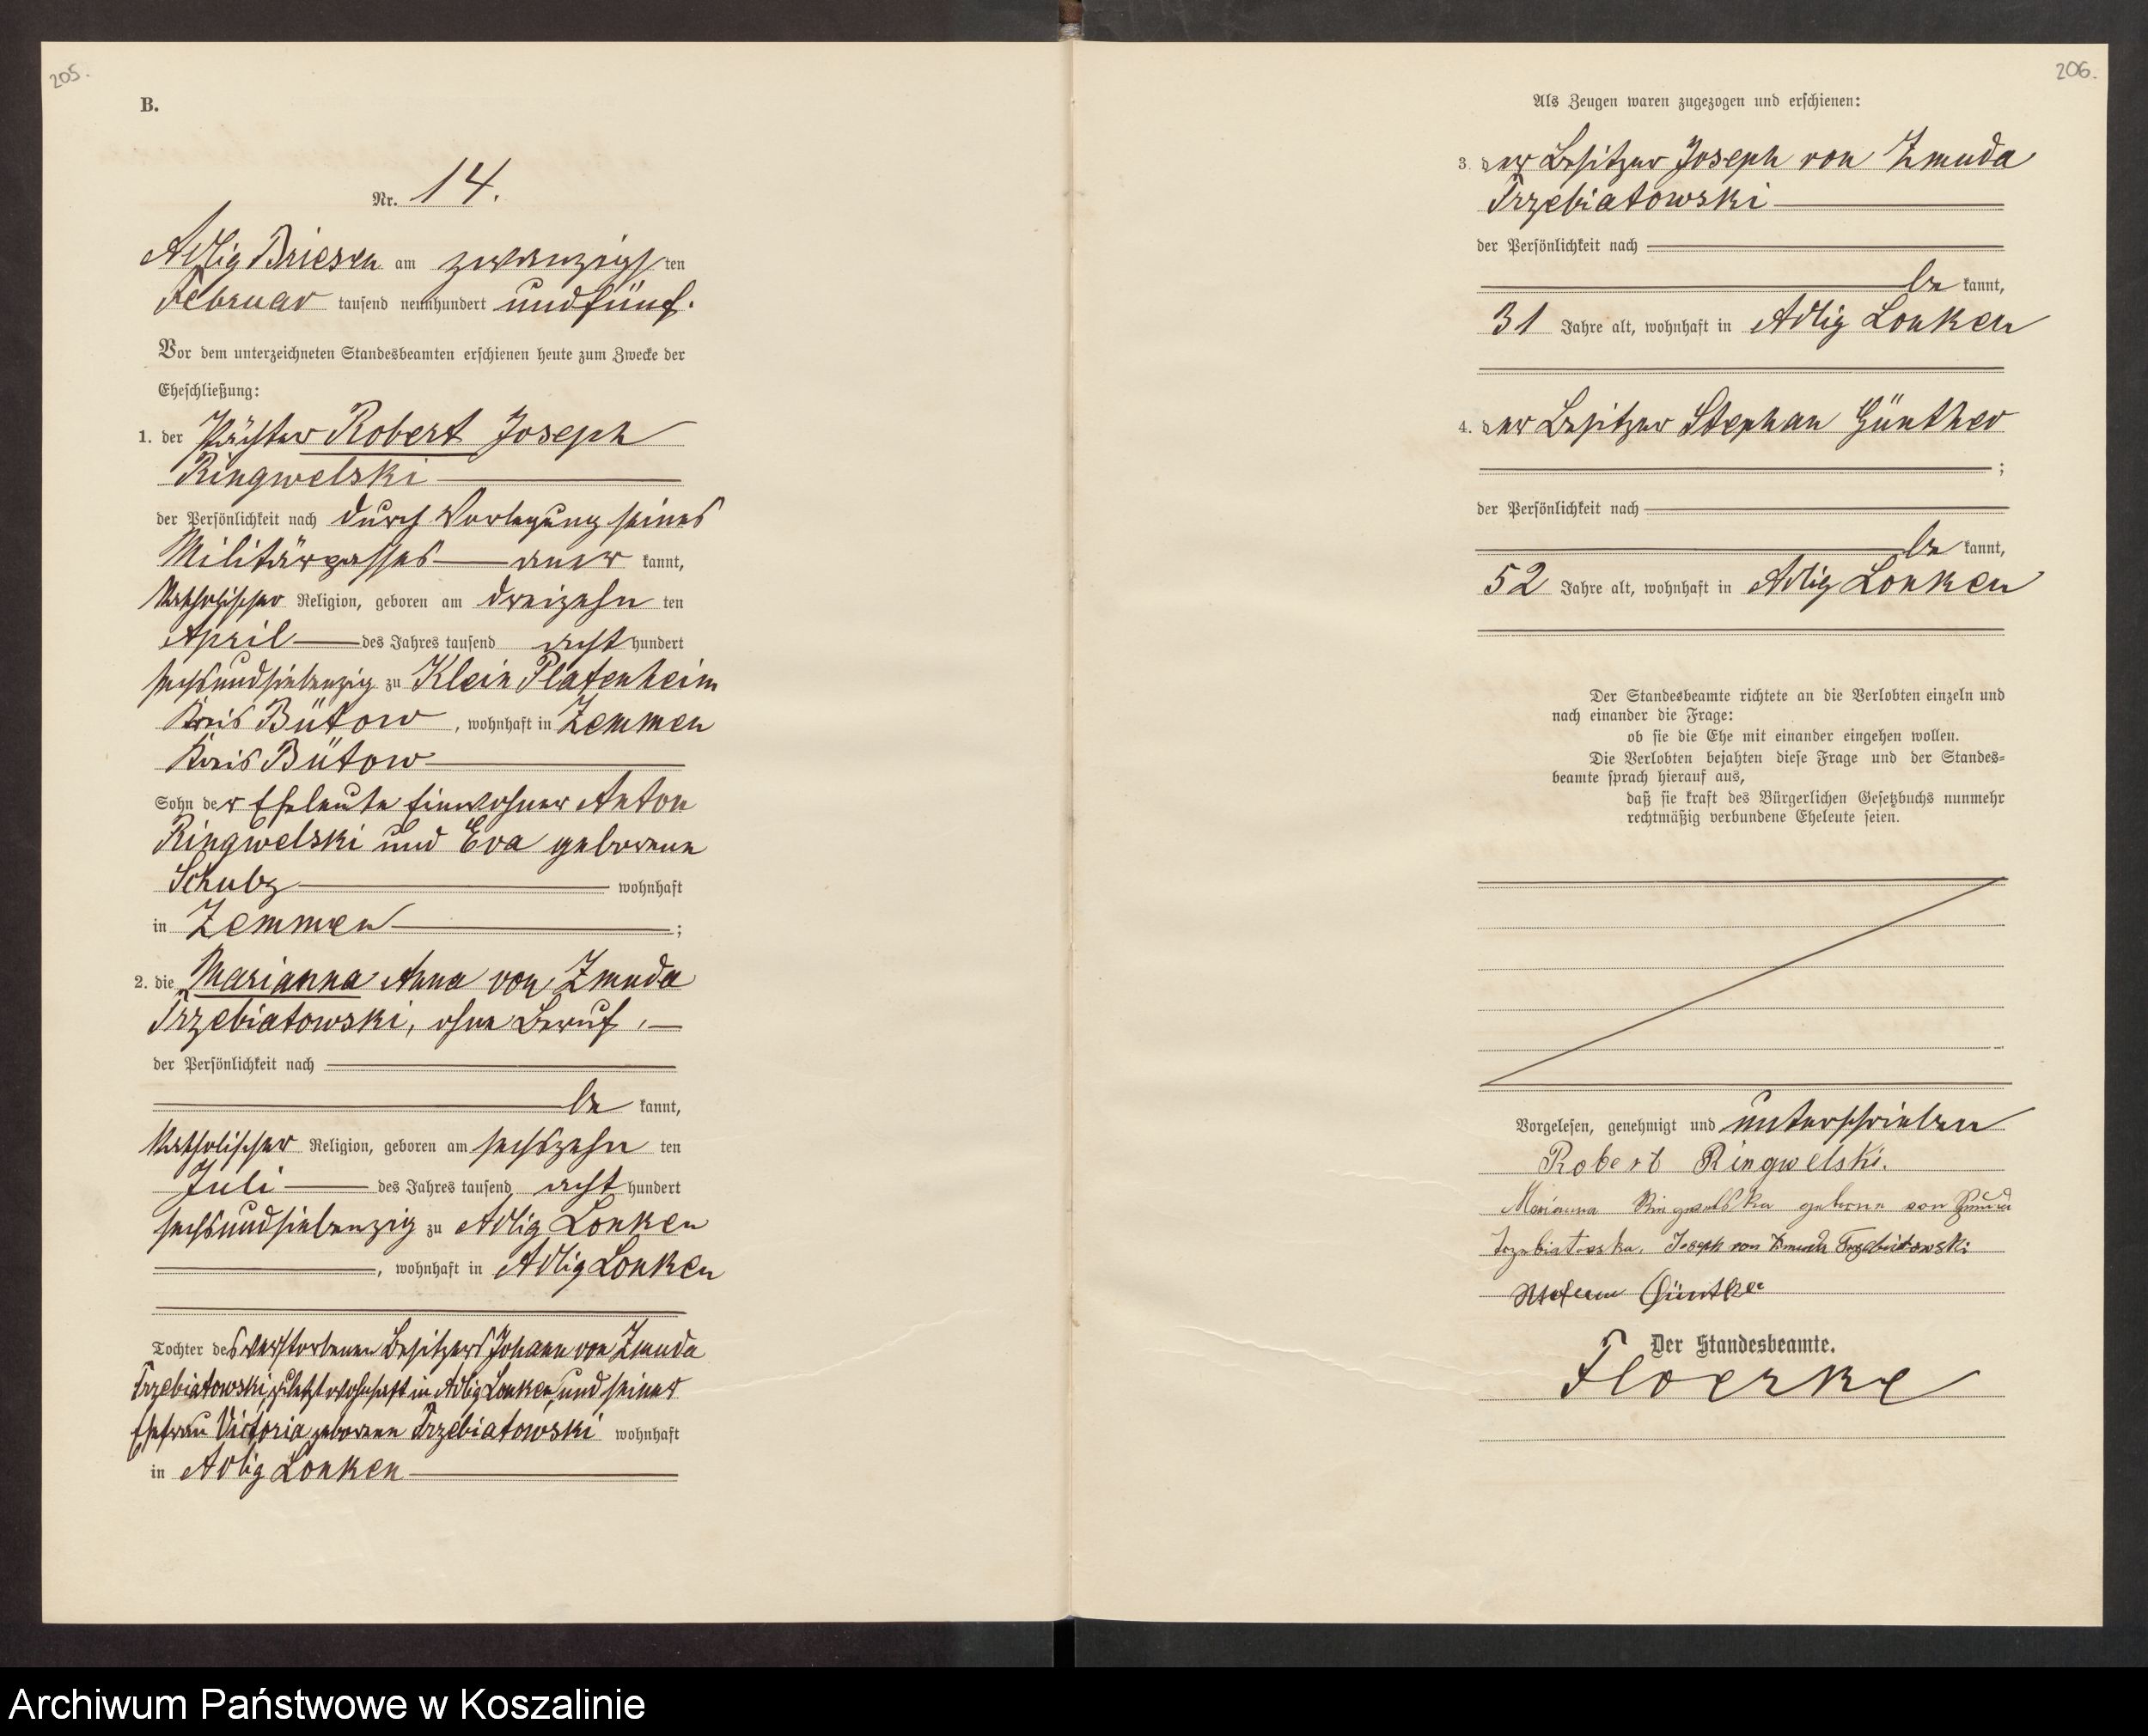 205.
B.
Nr. 14.
Adlig Briesen am zwanzigsten
Februar tausend neunhundert undfünf.
Vor dem unterzeichneten Standesbeamten erschienen heute zum Zwecke der
Eheschließung:
1. der Pächter Robert Joseph
Ringwelski
der Persönlichkeit nach durch Vorlegung seines
Militärpasses aner kannt,
katholischer Religion, geboren am dreizehn ten
April des Jahres tausend acht hundert
sechsundsiebenzig zu Klein Platenheim
Kreis Bütow, wohnhaft in Zemmen
Kreis Bütow
Sohn der Eheleute Einwohner Anton
Ringwelski und Eva geborene
Schulz wohnhaft
in Zemmen;
2. die Marianna Anna von Zmuda
Trzebiatowski, ohne Beruf,
der Persönlichkeit nach
be kannt,
katholischer Religion, geboren am sechszehn ten
Juli des Jahres tausend acht hundert
sechsundsiebenzig zu Adlig Lonken
, wohnhaft in Adlig Lonken
Tochter des verstorbenen Besitzers Johann von Zmuda
Trzebiatowski, zuletzt wohnhaft in Adlig Lonken, und seiner
Ehefrau Victoria geborene Trzebiatowski wohnhaft
in Adlig Lonken
206.
Als Zeugen waren zugezogen und erschienen:
3. der Besitzer Joseph von Zmuda
Trzebiatowski
der Persönlichkeit nach
be kannt,
31 Jahre alt, wohnhaft in Adlig Lonken
4. der Besitzer Stephan Günther
;
der Persönlichkeit nach
be kannt,
52 Jahre alt, wohnhaft in Adlig Lonken
Der Standesbeamte richtete an die Verlobten einzeln und
nach einander die Frage:
ob sie die Ehe mit einander eingehen wollen.
Die Verlobten bejahten diese Frage und der Standes-
beamte sprach hierauf aus,
daß sie kraft des Bürgerlichen Gesetzbuchs nunmehr
rechtmäßig verbundene Eheleute seien.
Vorgelesen, genehmigt und unterschrieben
Robert Ringwelski.
Marianna Ringwelska geborne von Zmuda
Trzebiatowska. Joseph von Zmuda Trzebiatowski
Günther
Der Standesbeamte.
Floerke
Archiwum Państwowe w Koszalinie